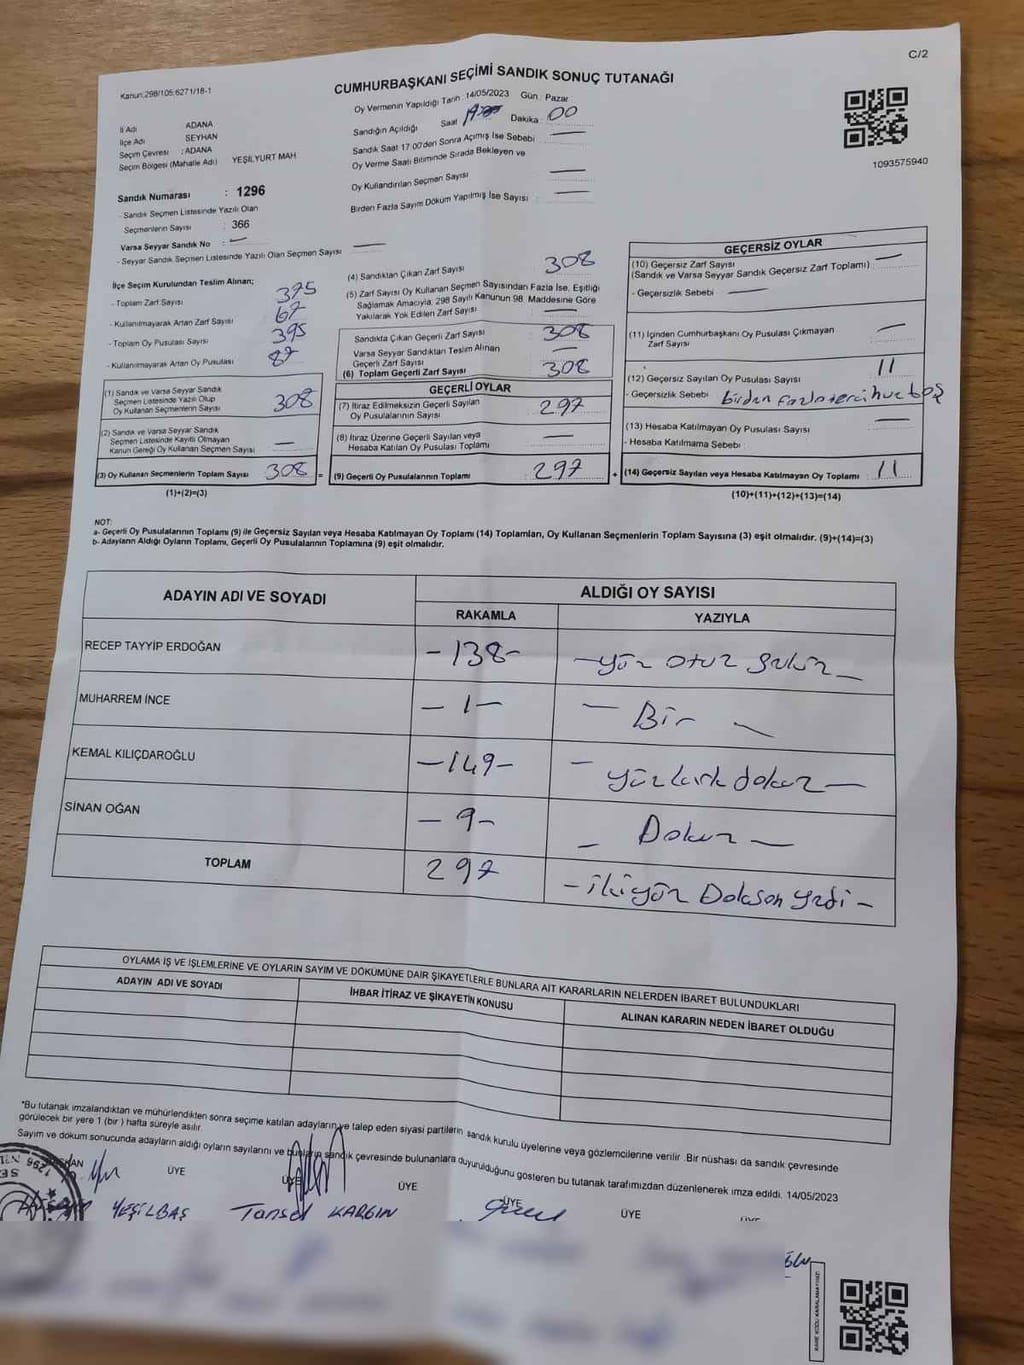 C/2
CUMHURBAŞKANI SEÇİMİ SANDIK SONUÇ TUTANAĞI
Kanun:298/105,6271/18-1
Oy Vermenin Yapıldığı Tarih : 14/05/2023 Gün : Pazar
Sandığın Açıldığı Saat Dakika : 00
Sandık Saat 17.00'den Sonra Açmış İse Sebebi : —
Oy Verme Saati Bitiminde Sırada Bekleyen ve
Oy Kullandırılan Seçmen Sayısı —
Birden Fazla Sayım Döküm Yapılmış İse Sayısı : —
1093575940
İl Adı ADANA
İlçe Adı SEYHAN
Seçim Çevresi : ADANA
Seçim Bölgesi (Mahalle Adı) YEŞİLYURT MAH
Sandık Numarası : 1296
- Sandık Seçmen Listesinde Yazılı Olan
Seçmenlerin Sayısı : 366
Varsa Seyyar Sandık No : —
- Seyyar Sandık Seçmen Listesinde Yazılı Olan Seçmen Sayısı —
İlçe Seçim Kurulundan Teslim Alınan;
- Toplam Zarf Sayısı 375
- Kullanılmayarak Artan Zarf Sayısı 67
- Toplam Oy Pusulası Sayısı 395
- Kullanılmayarak Artan Oy Pusulası 87
(1) Sandık ve Varsa Seyyar Sandık
Seçmen Listesinde Yazılı Olup
Oy Kullanan Seçmenlerin Sayısı 308
(2) Sandık ve Varsa Seyyar Sandık
Seçmen Listesinde Kayıtlı Olmayan
Kanun Gereği Oy Kullanan Seçmen Sayısı —
(3) Oy Kullanan Seçmenlerin Toplam Sayısı 308 =
(1)+(2)=(3)
(4) Sandıktan Çıkan Zarf Sayısı 308
(5) Zarf Sayısı Oy Kullanan Seçmen Sayısından Fazla İse, Eşitliği
Sağlamak Amacıyla, 298 Sayılı Kanunun 98. Maddesine Göre
Yakılarak Yok Edilen Zarf Sayısı —
Sandıkta Çıkan Geçerli Zarf Sayısı 308
Varsa Seyyar Sandıktan Teslim Alınan
Geçerli Zarf Sayısı —
(6) Toplam Geçerli Zarf Sayısı 308
GEÇERLİ OYLAR
(7) İtiraz Edilmeksizin Geçerli Sayılan
Oy Pusulalarının Sayısı 297
(8) İtiraz Üzerine Geçerli Sayılan veya
Hesaba Katılan Oy Pusulası Toplamı —
(9) Geçerli Oy Pusulalarının Toplamı 297 +
GEÇERSİZ OYLAR
(10) Geçersiz Zarf Sayısı —
(Sandık ve Varsa Seyyar Sandık Geçersiz Zarf Toplamı)
- Geçersizlik Sebebi : —
(11) İçinden Cumhurbaşkanı Oy Pusulası Çıkmayan
Zarf Sayısı —
(12) Geçersiz Sayılan Oy Pusulası Sayısı 11
- Geçersizlik Sebebi : birden fazla tercih ve boş
(13) Hesaba Katılmayan Oy Pusulası Sayısı —
- Hesaba Katılmama Sebebi :
(14) Geçersiz Sayılan veya Hesaba Katılmayan Oy Toplamı : 11
(10)+(11)+(12)+(13)=(14)
NOT:
a- Geçerli Oy Pusulalarının Toplamı (9) ile Geçersiz Sayılan veya Hesaba Katılmayan Oy Toplamı (14) Toplamları, Oy Kullanan Seçmenlerin Toplam Sayısına (3) eşit olmalıdır. (9)+(14)=(3)
b- Adayların Aldığı Oyların Toplamı, Geçerli Oy Pusulalarının Toplamına (9) eşit olmalıdır.
ADAYIN ADI VE SOYADI ALDIĞI OY SAYISI
RAKAMLA YAZIYLA
RECEP TAYYİP ERDOĞAN -138- - yüz otuz sekiz -
MUHARREM İNCE -1- - Bir -
KEMAL KILIÇDAROĞLU -149- - yüz kırk dokuz -
SİNAN OĞAN -9- - Dokuz -
TOPLAM 297 - ikiyüz Doksan yedi -
OYLAMA İŞ VE İŞLEMLERİNE VE OYLARIN SAYIM VE DÖKÜMÜNE DAİR ŞİKAYETLERLE BUNLARA AİT KARARLARIN NELERDEN İBARET BULUNDUKLARI
ADAYIN ADI VE SOYADI İHBAR İTİRAZ VE ŞİKAYETİN KONUSU ALINAN KARARIN NEDEN İBARET OLDUĞU
*Bu tutanak imzalandıktan ve mühürlendikten sonra seçime katılan adayların ve talep eden siyasi partilerin sandık kurulu üyelerine veya gözlemcilerine verilir. Bir nüshası da sandık çevresinde
görülecek bir yere 1 (bir) hafta süreyle asılır.
Sayım ve döküm sonucunda adayların aldığı oyların sayılarını ve bunların sandık çevresinde bulunanlara duyurulduğunu gösteren bu tutanak tarafımızdan düzenlenerek imza edildi. 14/05/2023
ÜYE ÜYE ÜYE ÜYE ÜYE
YEŞİLBAŞ Tansel KARGIN
KARE KODU KARALAMAYINIZ!